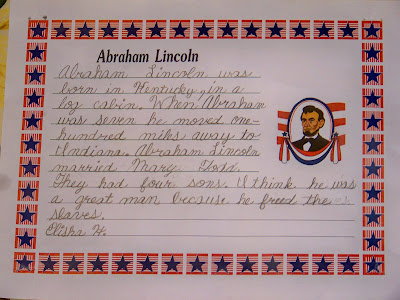 Abraham Lincoln
Abraham Lincoln was
born in Kentucky, in a
log cabin. When Abraham
was seven he moved one-
hundred miles away to
Indiana. Abraham Lincoln
married Mary Todd.
They had four sons. I think he was
a great man because he freed the
slaves.
Elisha H.